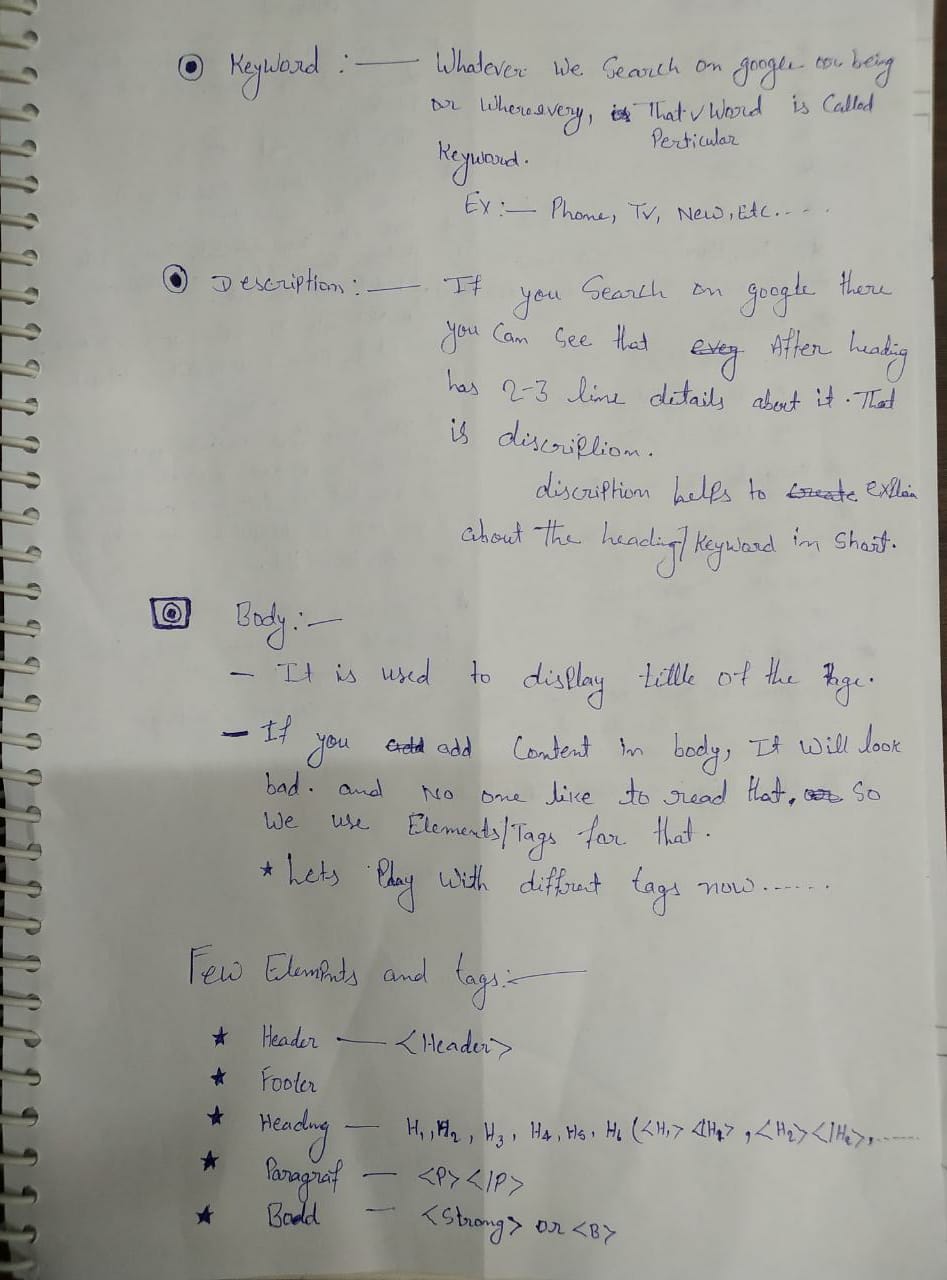 Keyword :— Whatever We Search on google or being
or Whereevery, is That ✓ Word is Called
Perticular
Keyword.
Ex:— Phone, TV, New, Etc.....
Description :— If you Search on google there
you Can See that evey After heading
has 2-3 line details about it. That
is discription.
discription helps to create explain
about the heading/Keyword in Short.
Body:—
— It is used to display tittle of the Page.
— If you add add Content in body, It will look
bad. and No one like to read that, So
We use Elements/Tags for that.
★ Lets Play With diffrent tags now......
Few Elements and tags:—
★ Header — <Header>
★ Footer
★ Heading — H1, H2, H3, H4, H5, H6 (<H1> <H1>, <H2></H2>,......
★ Paragraf — <P></P>
★ Bold — <Strong> or <B>